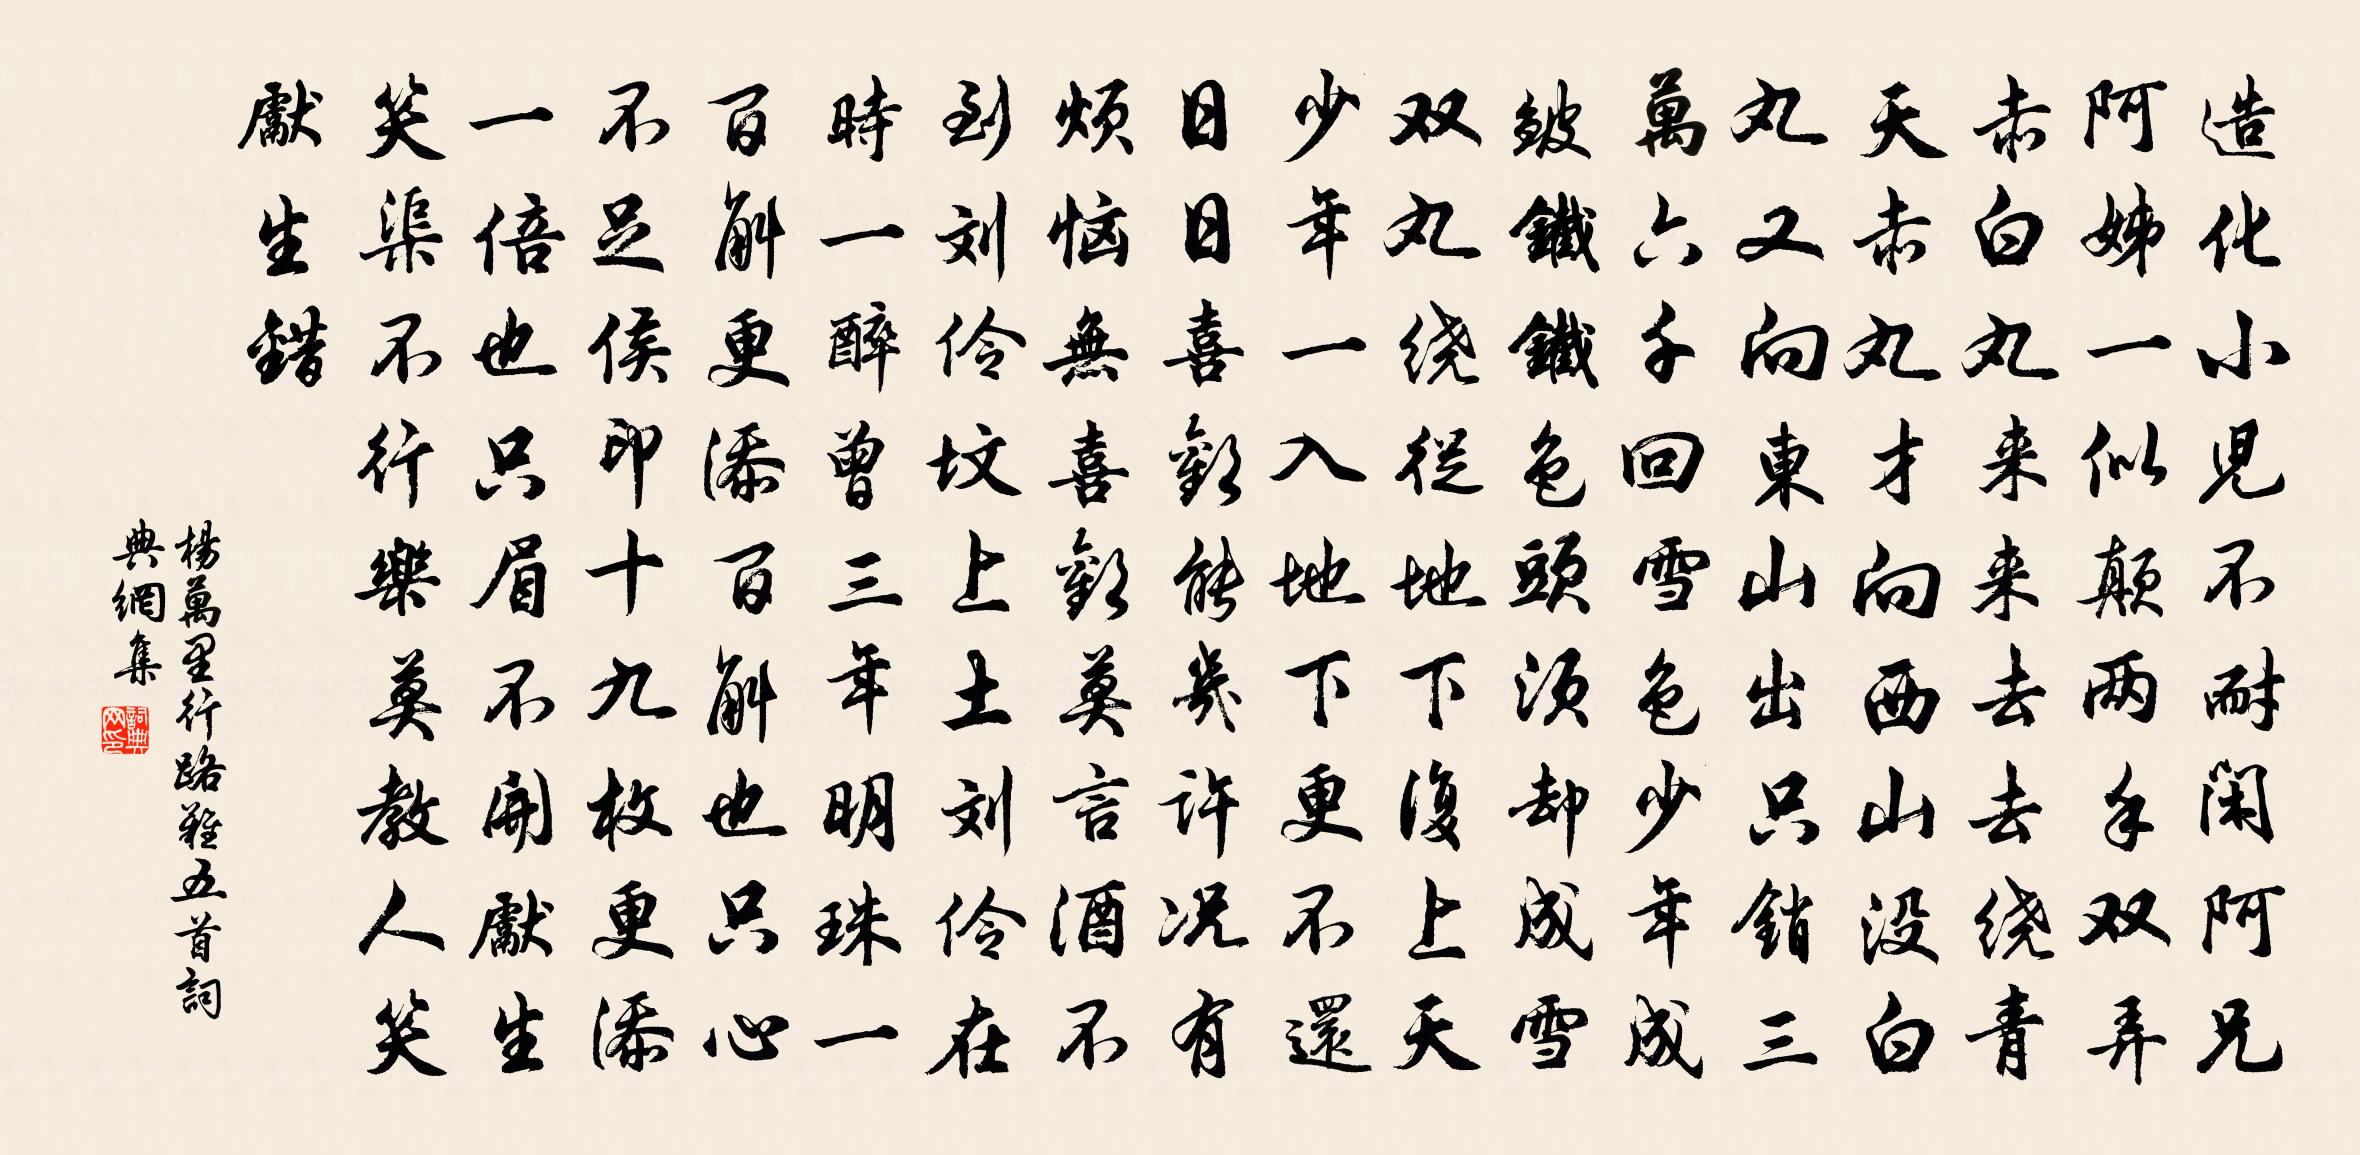 造化小児不耐闲阿兄
阿姊一似颠两手双弄
赤白丸来来去去绕青
天赤丸才向西山没白
丸又向東山出只銷三
萬六千回雪色少年成
皴鐵鐵色頭须却成雪
双丸绕從地下復上天
少年一入地下更不還
日日喜歡能幾许况有
烦恼無喜歡莫言酒不
到刘伶坟上土刘伶在
時一醉曾三年明珠一
百斛更添百斛也只心
不足侯印十九枚更添
一倍也只眉不開獻生
笑渠不行樂莫教人笑
獻生錯
楊萬里行路難五首詞
典網集
詞典网印